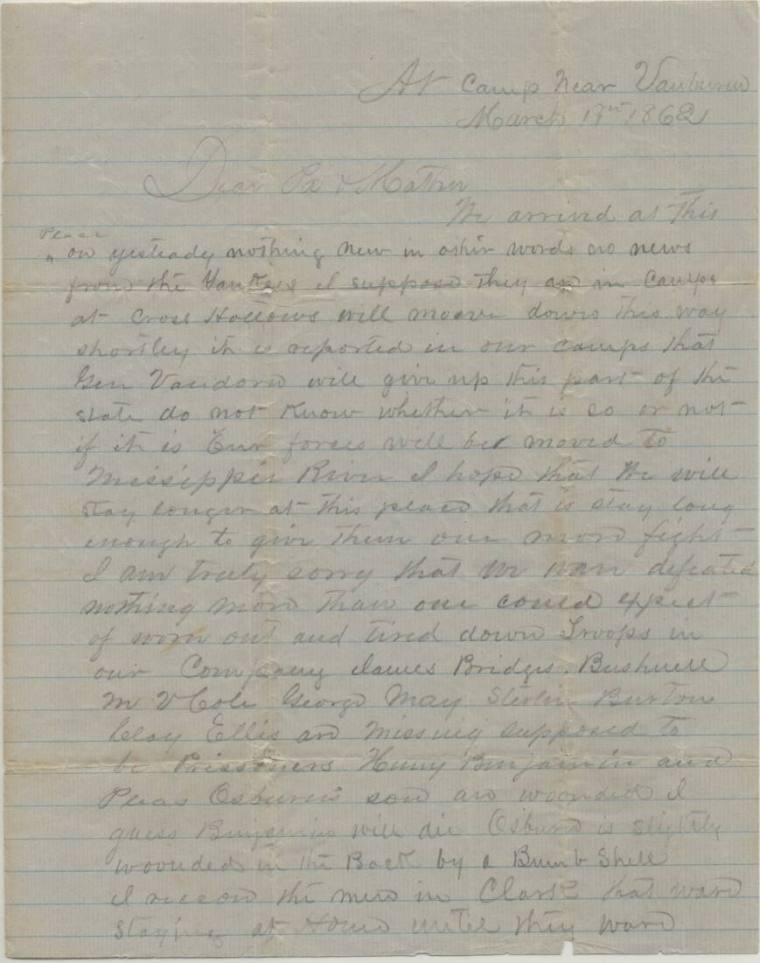 At Camp Near Vanburen
March 17th 1862
Dear Pa & Mother
We arrived at This
Place
on yesteady nothing new in othir words no news
from the Yankees I suppose they ar in Camps
at Cross Hollows will moove down This way
shortley it is reported in our camps that
Gen Vandorn will give up this part of the
state do not Know whether it is so or not
if it is Our forces will be moved to
Missippi River I hope that We will
stay longer at this place that is stay long
enough to give them one more fight
I am truly sorry that we ware defeated
nothing more than one coued expect
of worn out and tired down Troops in
our Company James Bridges. Bushnell
M V Cole George May Sterlin Burton
Clay Ellis are Missing supposed to
be Prissoners Henry Benjamin and
Osburns son are woonded I
guess Benjamin will die Osburn is slightly
woonded in the Back by a Bumb Shell
I reccon the men in Clark that ware
staying at Home until they ware